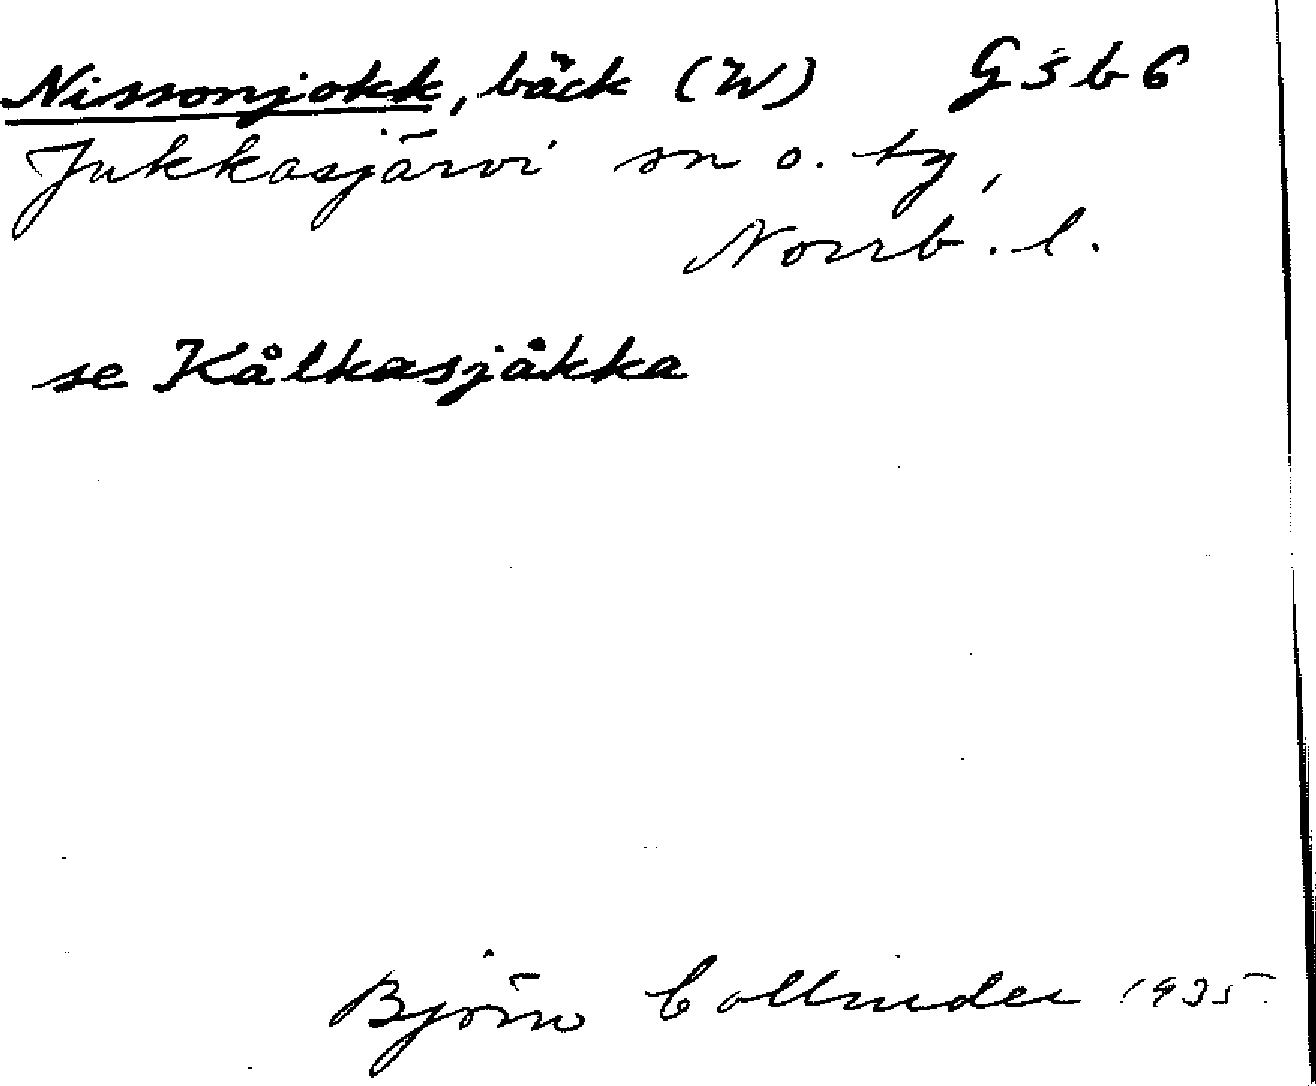 Nissonjokk, bäck (W) G5b6
Jukkasjärvi sn o. tg,
Norrb. l.
se Kålkasjåkka
Björn Collinder 1935